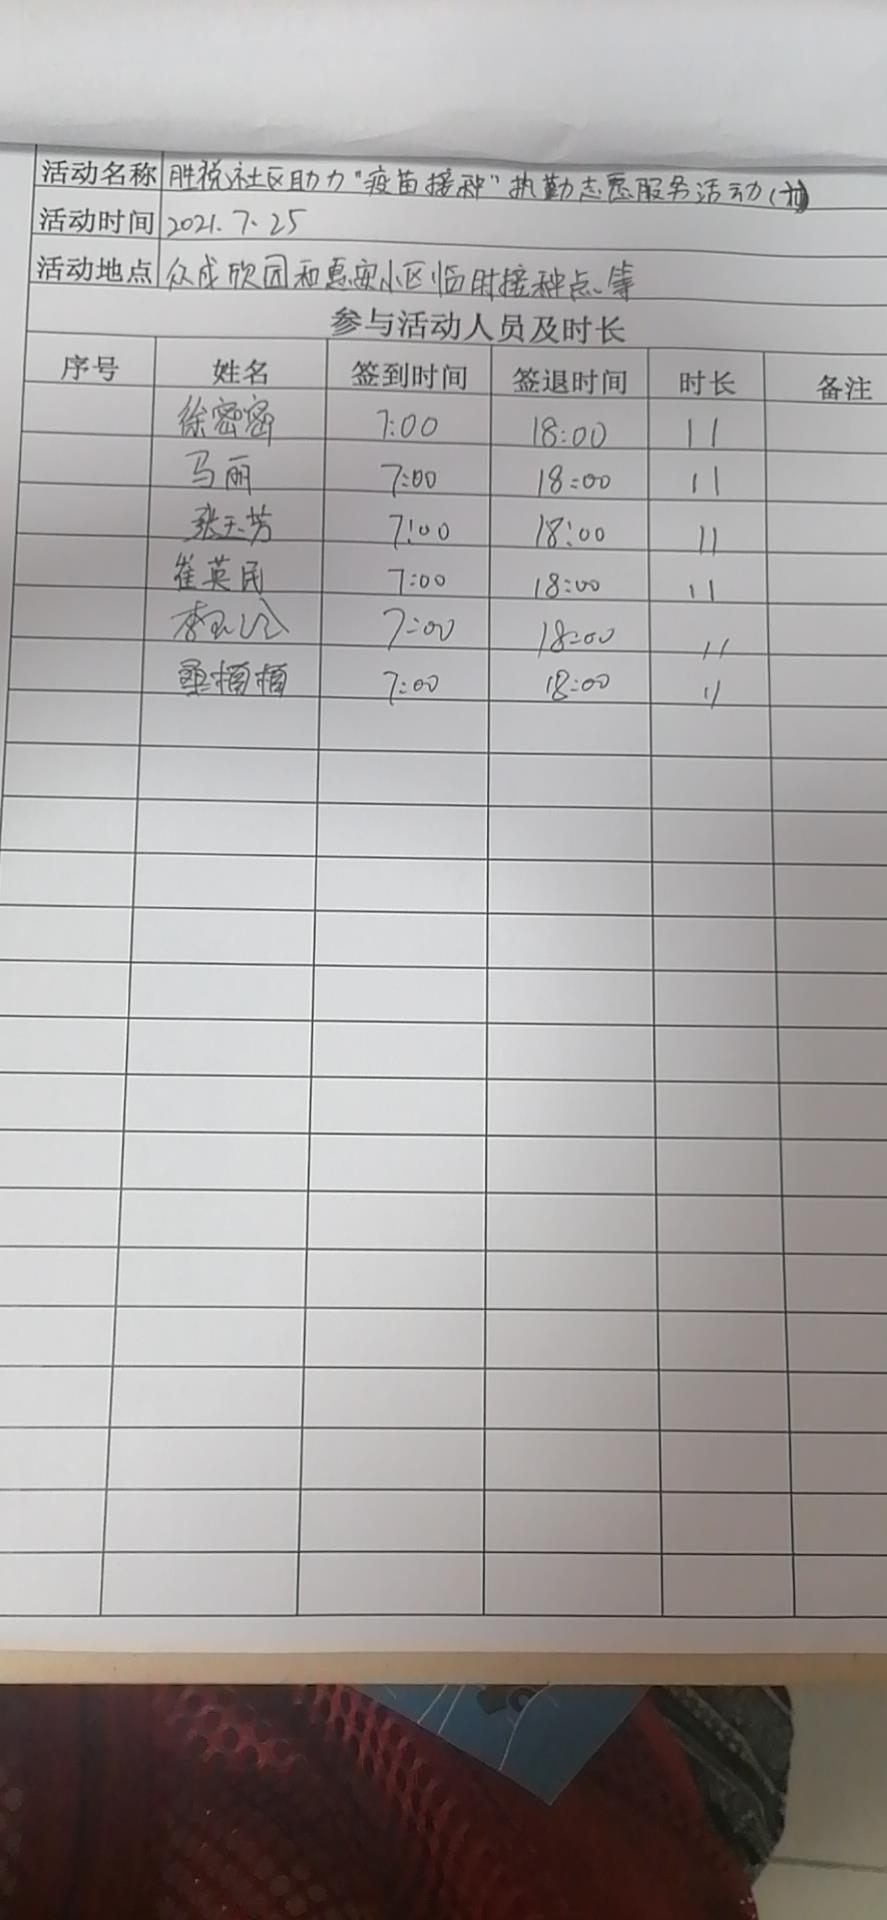 活动名称 胜利社区助力"疫苗接种"执勤志愿服务活动
活动时间 2021.7.25
活动地点 众成欣园和惠安小区临时接种点等
参与活动人员及时长
序号 姓名 签到时间 签退时间 时长 备注
徐密密 7:00 18:00 11
马丽 7:00 18:00 11
张玉芳 7:00 18:00 11
崔英民 7:00 18:00 11
李 7:00 18:00 11
桑 7:00 18:00 11